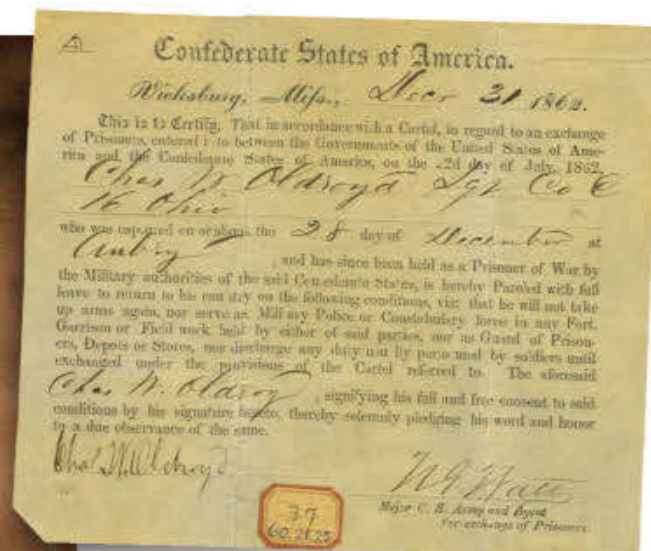 Confederate States of America.
Vicksburg, Miss., Decr 31 1862.
This is to Certify, That in accordance with a Cartel, in regard to an exchange
of Prisoners, entered into between the Governments of the United States of Ame-
rica and the Confederate States of America, on the 22d day of July, 1862,
Chas W Oldroyd Sgt Co E
16 Ohio
who was captured on or about the 28 day of December at
, and has since been held as a Prisoner of War by
the Military authorities of the said Confederate States, is hereby Paroled with full
leave to return to his country on the following conditions, viz: that he will not take
up arms again, nor serve as Military Police or Constabulary force in any Fort,
Garrison or Field work held by either of said parties, nor as Guard of Prison-
ers, Depots or Stores, nor discharge any duty usually performed by soldiers until
exchanged under the provisions of the Cartel referred to. The aforesaid
Chas W. Oldroy , signifying his full and free consent to said
conditions by his signature hereto, thereby solemnly pledging his word and honor
to a due observance of the same.
Chas W Oldroyd
N G Watts
Major C. S. Army and Agent
for exchange of Prisoners
37
60.2825